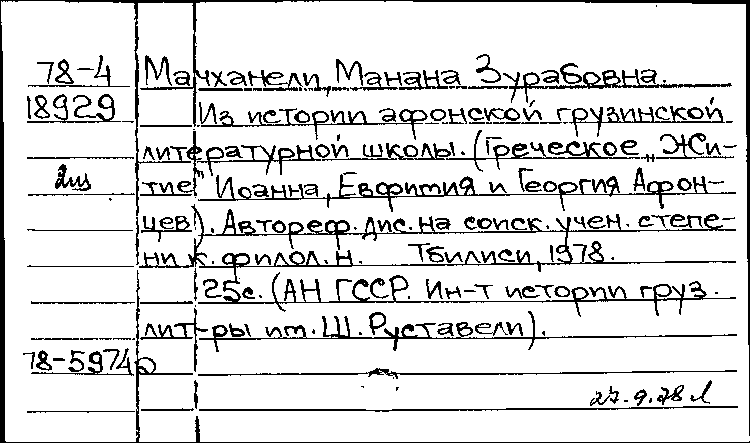 78-4 Мачханели, Манана Зурабовна.
18929 Из истории афонской грузинской
литературной школы. (Греческое „Жи-
2из тие" Иоанна, Евфимия и Георгия Афон-
цев). Автореф. дис. на соиск. учен. степе-
ни к. филол. н. Тбилиси, 1978.
25с. (АН ГССР. Ин-т истории груз.
лит-ры им. Ш. Руставели).
78-5974
27.9.78